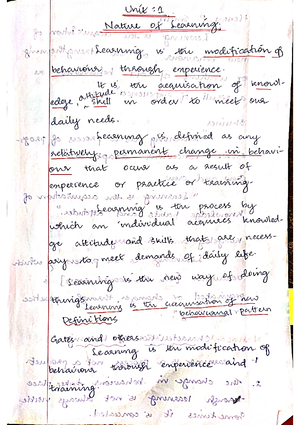 Unit : 1
Nature of Learning.
Learning is the modification of
behaviour through experience.
It is the acquisation of knowl-
edge attitude skill in order to meet our
daily needs.
Learning is defined as any
relatively permanent change in behavi-
our that occur as a result of
experience or practice or training.
Learning is the process by
which an individual acquires knowled-
ge attitude and skills that are neces-
ary to meet demands of daily life
Learning is the new way of doing
things
Learning is the accquisation of new
behavioural pattern
Definitions
Gates and others
Learning is the modification of
behaviour through experience and
training.